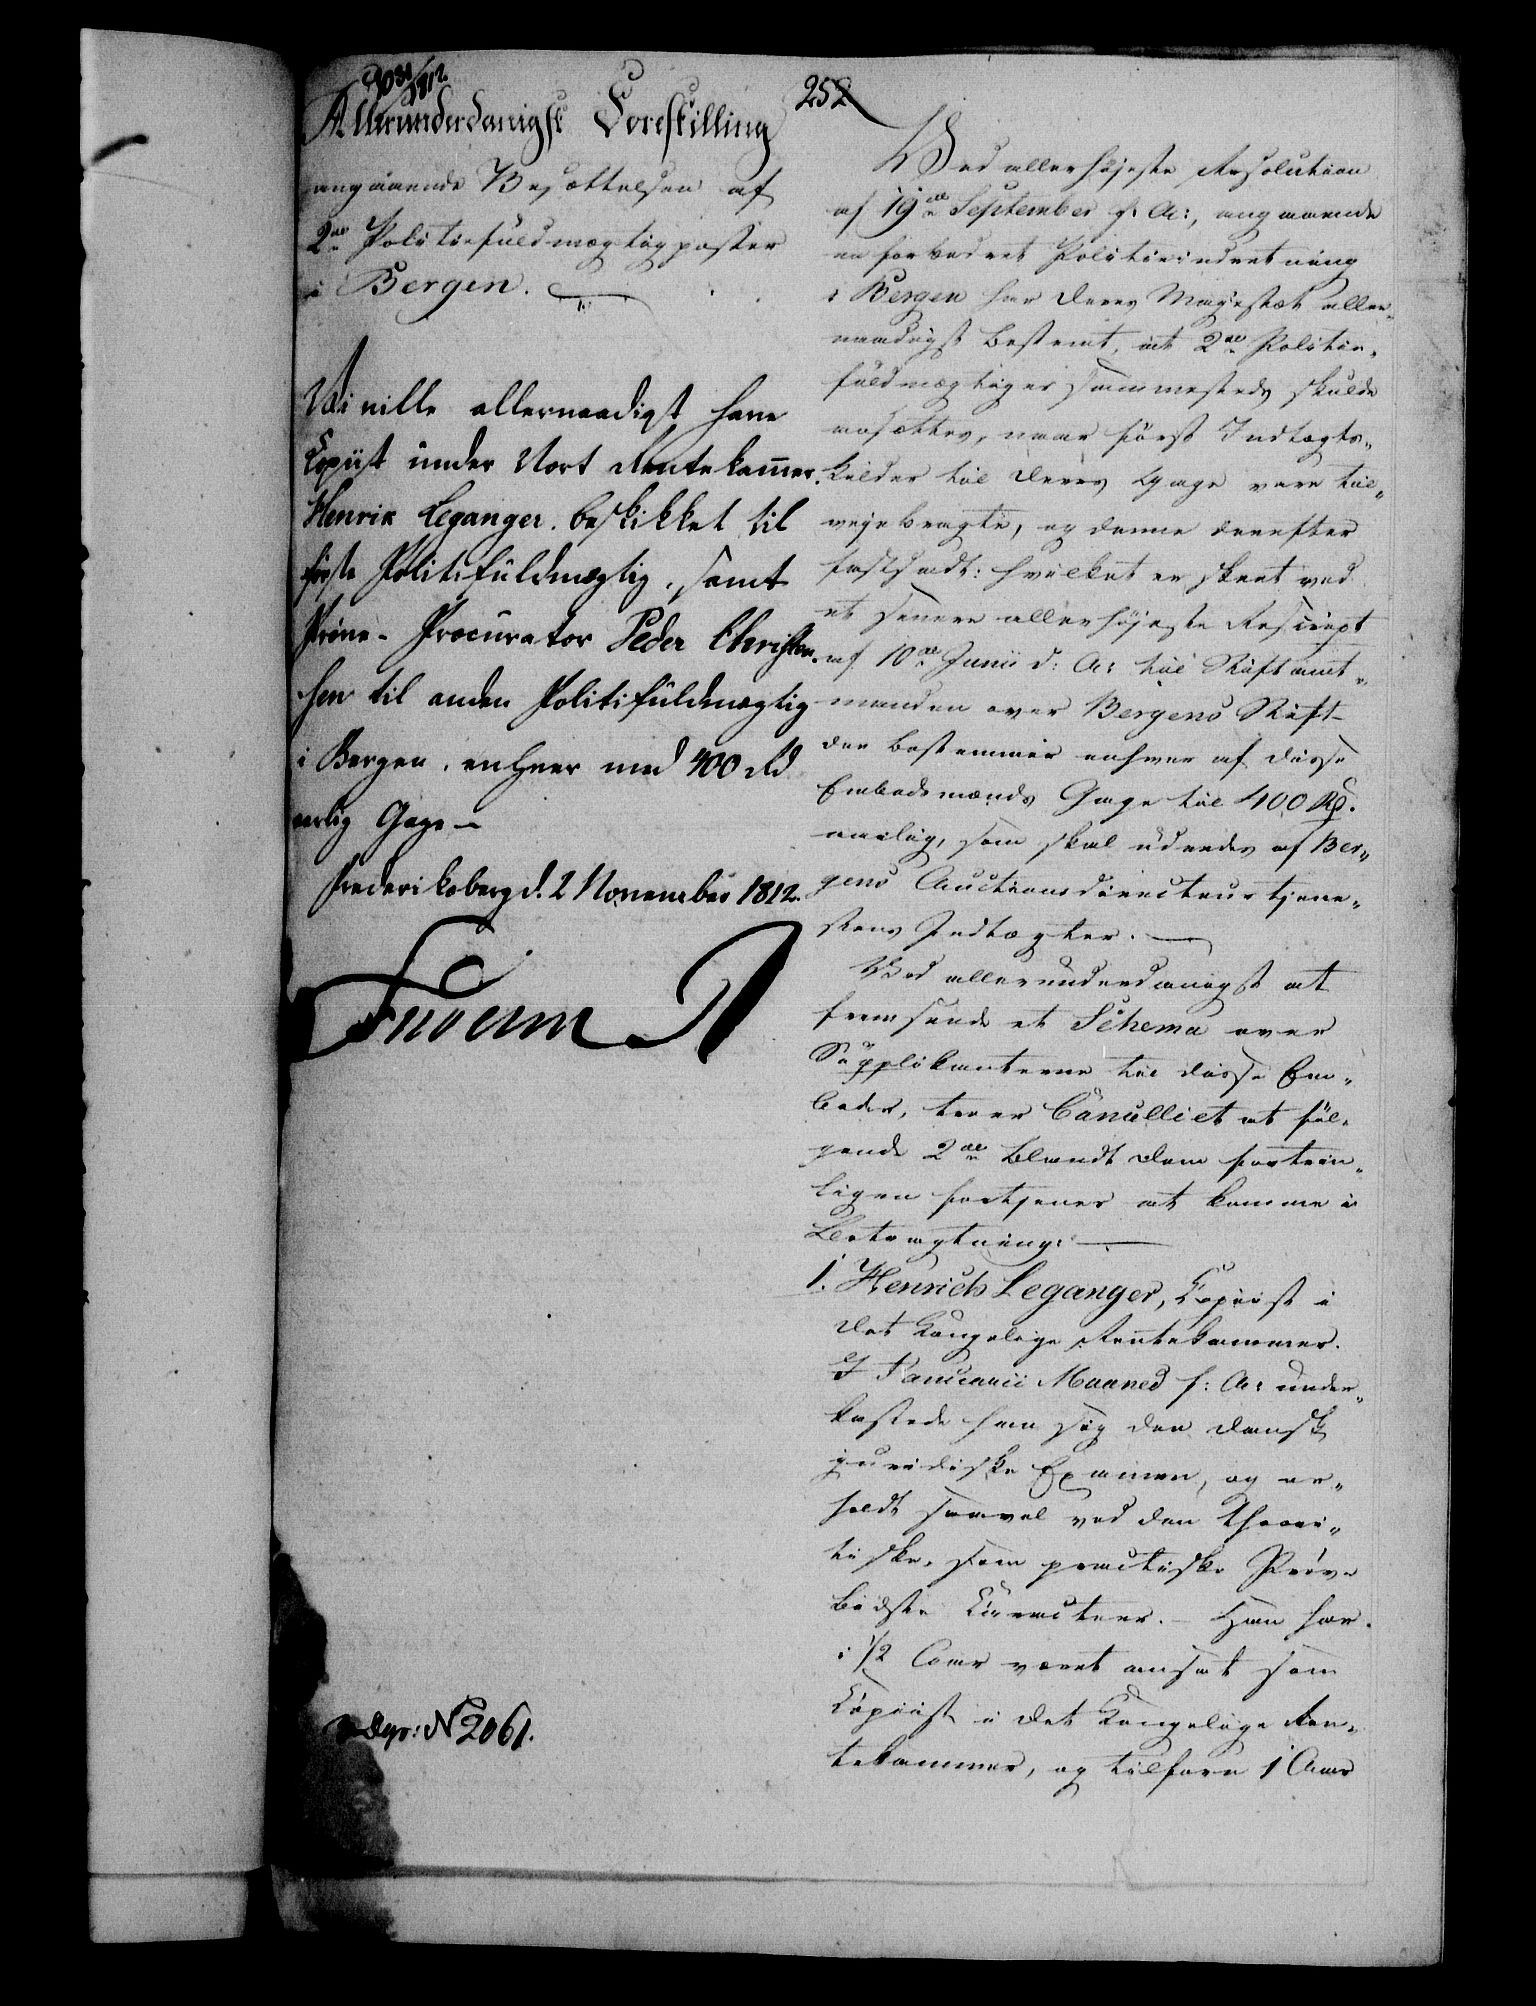 252
Allerunderdanigst Forestilling
angaaende Besættelsen af
2de Politiefuldmægtigposter
i Bergen.
Vi ville allernaadigst have
Copiist under Vort Rentekammer
Henrik Leganger beskikket til
første Politifuldmægtig, samt
Prøve-Procurator Peder Christen-
sen til anden Politifuldmægtig
i Bergen, enhver med 400 Rd
aarlig Gage –
Frederiksberg d. 2 November 1812.
Friderich R
Dep: No 2061.
Ved allerhøjeste Resolution
af 19de September f: A:, angaaende
en forbedret Politieindretning
i Bergen har Deres Majestæt aller-
naadigst bestemt, at 2de Politie-
fuldmægtiger sammesteds skulde
ansættes, naar først Indtægts-
kilder til deres Gage vare til-
vejebragte, og denne derefter
fastsadt: hvilket er skeet ved
et senere allerhøjeste Rescript
af 10de Junii d: A: til Stiftamt-
manden over Bergens Stift
der bestemmer enhver af disse
Embedsmænds Gage til 400 Rd.
aarlig, som skal udredes af Ber-
gens Auctionsdirecteurtjene-
stens Indtægter. –
Ved allerunderdanigst at
fremsende et Schema over
Supplikanterne til disse Em-
beder, troer Cancelliet at føl-
gende 2de blandt dem fortrin-
ligen fortjener at komme i
Betragtning: –
1. Henrich Leganger, Copiist i
det Kongelige Rentekammer.
I Januarii Maaned f: A: under-
kastede han sig den dansk
juridiske Examen, og er-
holdt saavel ved den theore-
tiske, som practiske Prøve
bedste Caracteer. – Han har
i 1/2 Aar været ansat som
Copiist i det Kongelige Ren-
tekammer, og tilforn 1 Aar